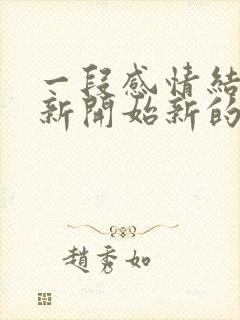 一段感情結
新開始新的
趙秀如